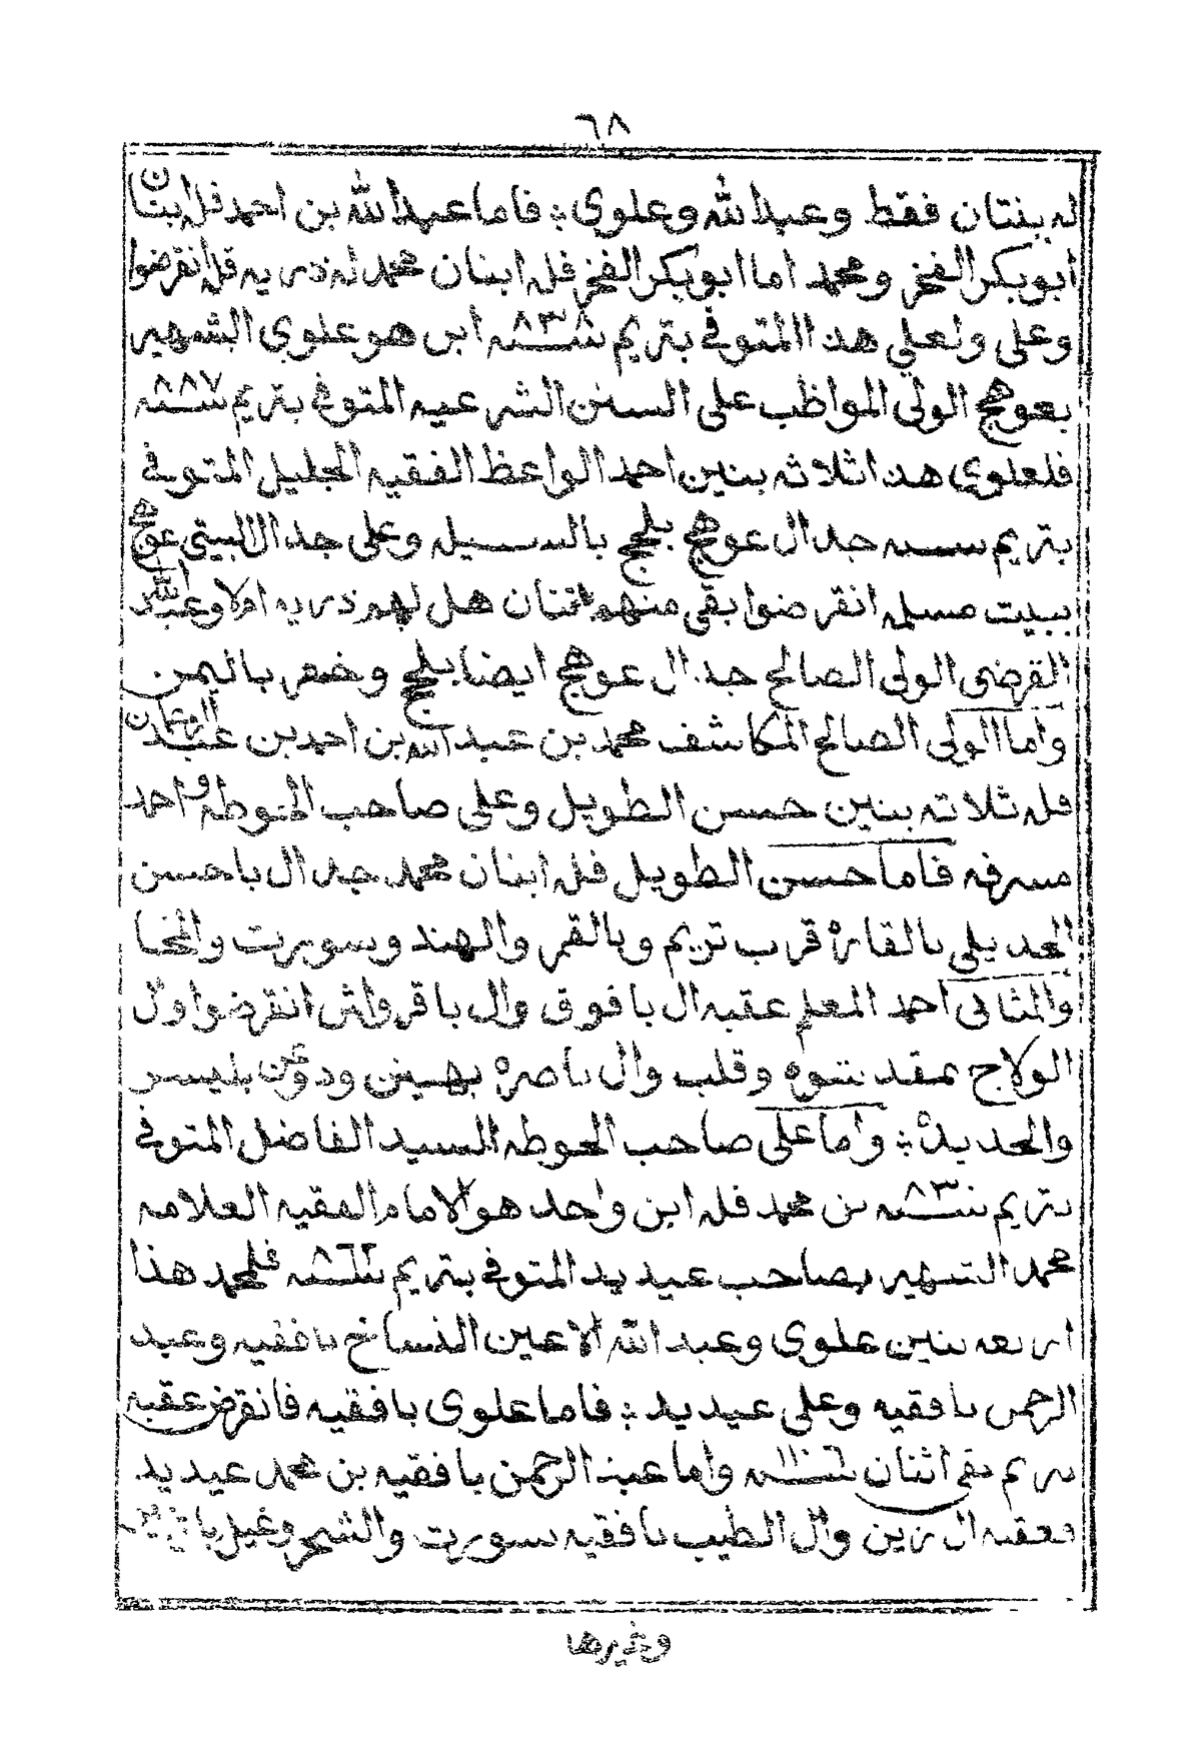 ٦٨
له بنتان فقط وعبدالله وعلوي ؛ فاما عبدالله بن احمد فله ابنان
ابوبكر الفخر ومحمد اما ابوبكر الفخر فله ابنان محمد له ذريه قل انقرضوا
وعلى ولعلي هذا المتوفي بتريم سنه ٨٣٨ ابن هو علوي الشهير
بعوهج الولى المواظب على السنن الشرعيه المتوفي بتريم سنه ٨٨٧
فلعلوي هذا ثلاثه بنين احمد الواعظ الفقيه الجليل المتوفي
بتريم سنه جد ال عوهج بلحج بالسيله وعلى جد ال البيتي عوهج
ببيت مسلمه انقرضوا بقى منهم اثنان هل لهم ذريه ام لا وعبدالله
القرضي الولى الصالح جد ال عوهج ايضا بلحج وخنفر باليمن
واما الولى الصالح المكاشف محمد بن عبدالله بن احمد بن عبدالرحمان
فله ثلاثه بنين حسن الطويل وعلى صاحب الحوطه واحمد
مسرفه فاما حسن الطويل فله ابنان محمد جد ال باحسن
الحديلي بالقاره قرب تريم وبالقمر والهند وسورت والمخا
والثاني احمد المعلم عقبه ال بافوق وال باقرواش انقرضوا وال
الولاج عقد وقلب وال باصره بهينن ودوعن بليسر
والحديده ؛ واما على صاحب الحوطه السيد الفاضل المتوفي
بتريم سنه ٨٣٠ بن محمد فله ابن واحد هو الامام الفقيه العلامه
محمد الشهير بصاحب عيديد المتوفي بتريم سنه ٨٦٢ فلمحمد هذا
اربعه بنين علوي وعبد الله الاعين النساخ بافقيه وعبد
الرحمن بافقيه وعلي عيديد ؛ فاما علوي بافقيه فانقرض عقبه
بتريم بقي اثنان سنه ١١٠٦ واما عبد الرحمن بافقيه بن محمد عيديد
فعقبه ال زين وال الطيب بافقيه بسورت والشحر وغيل
وغيرها